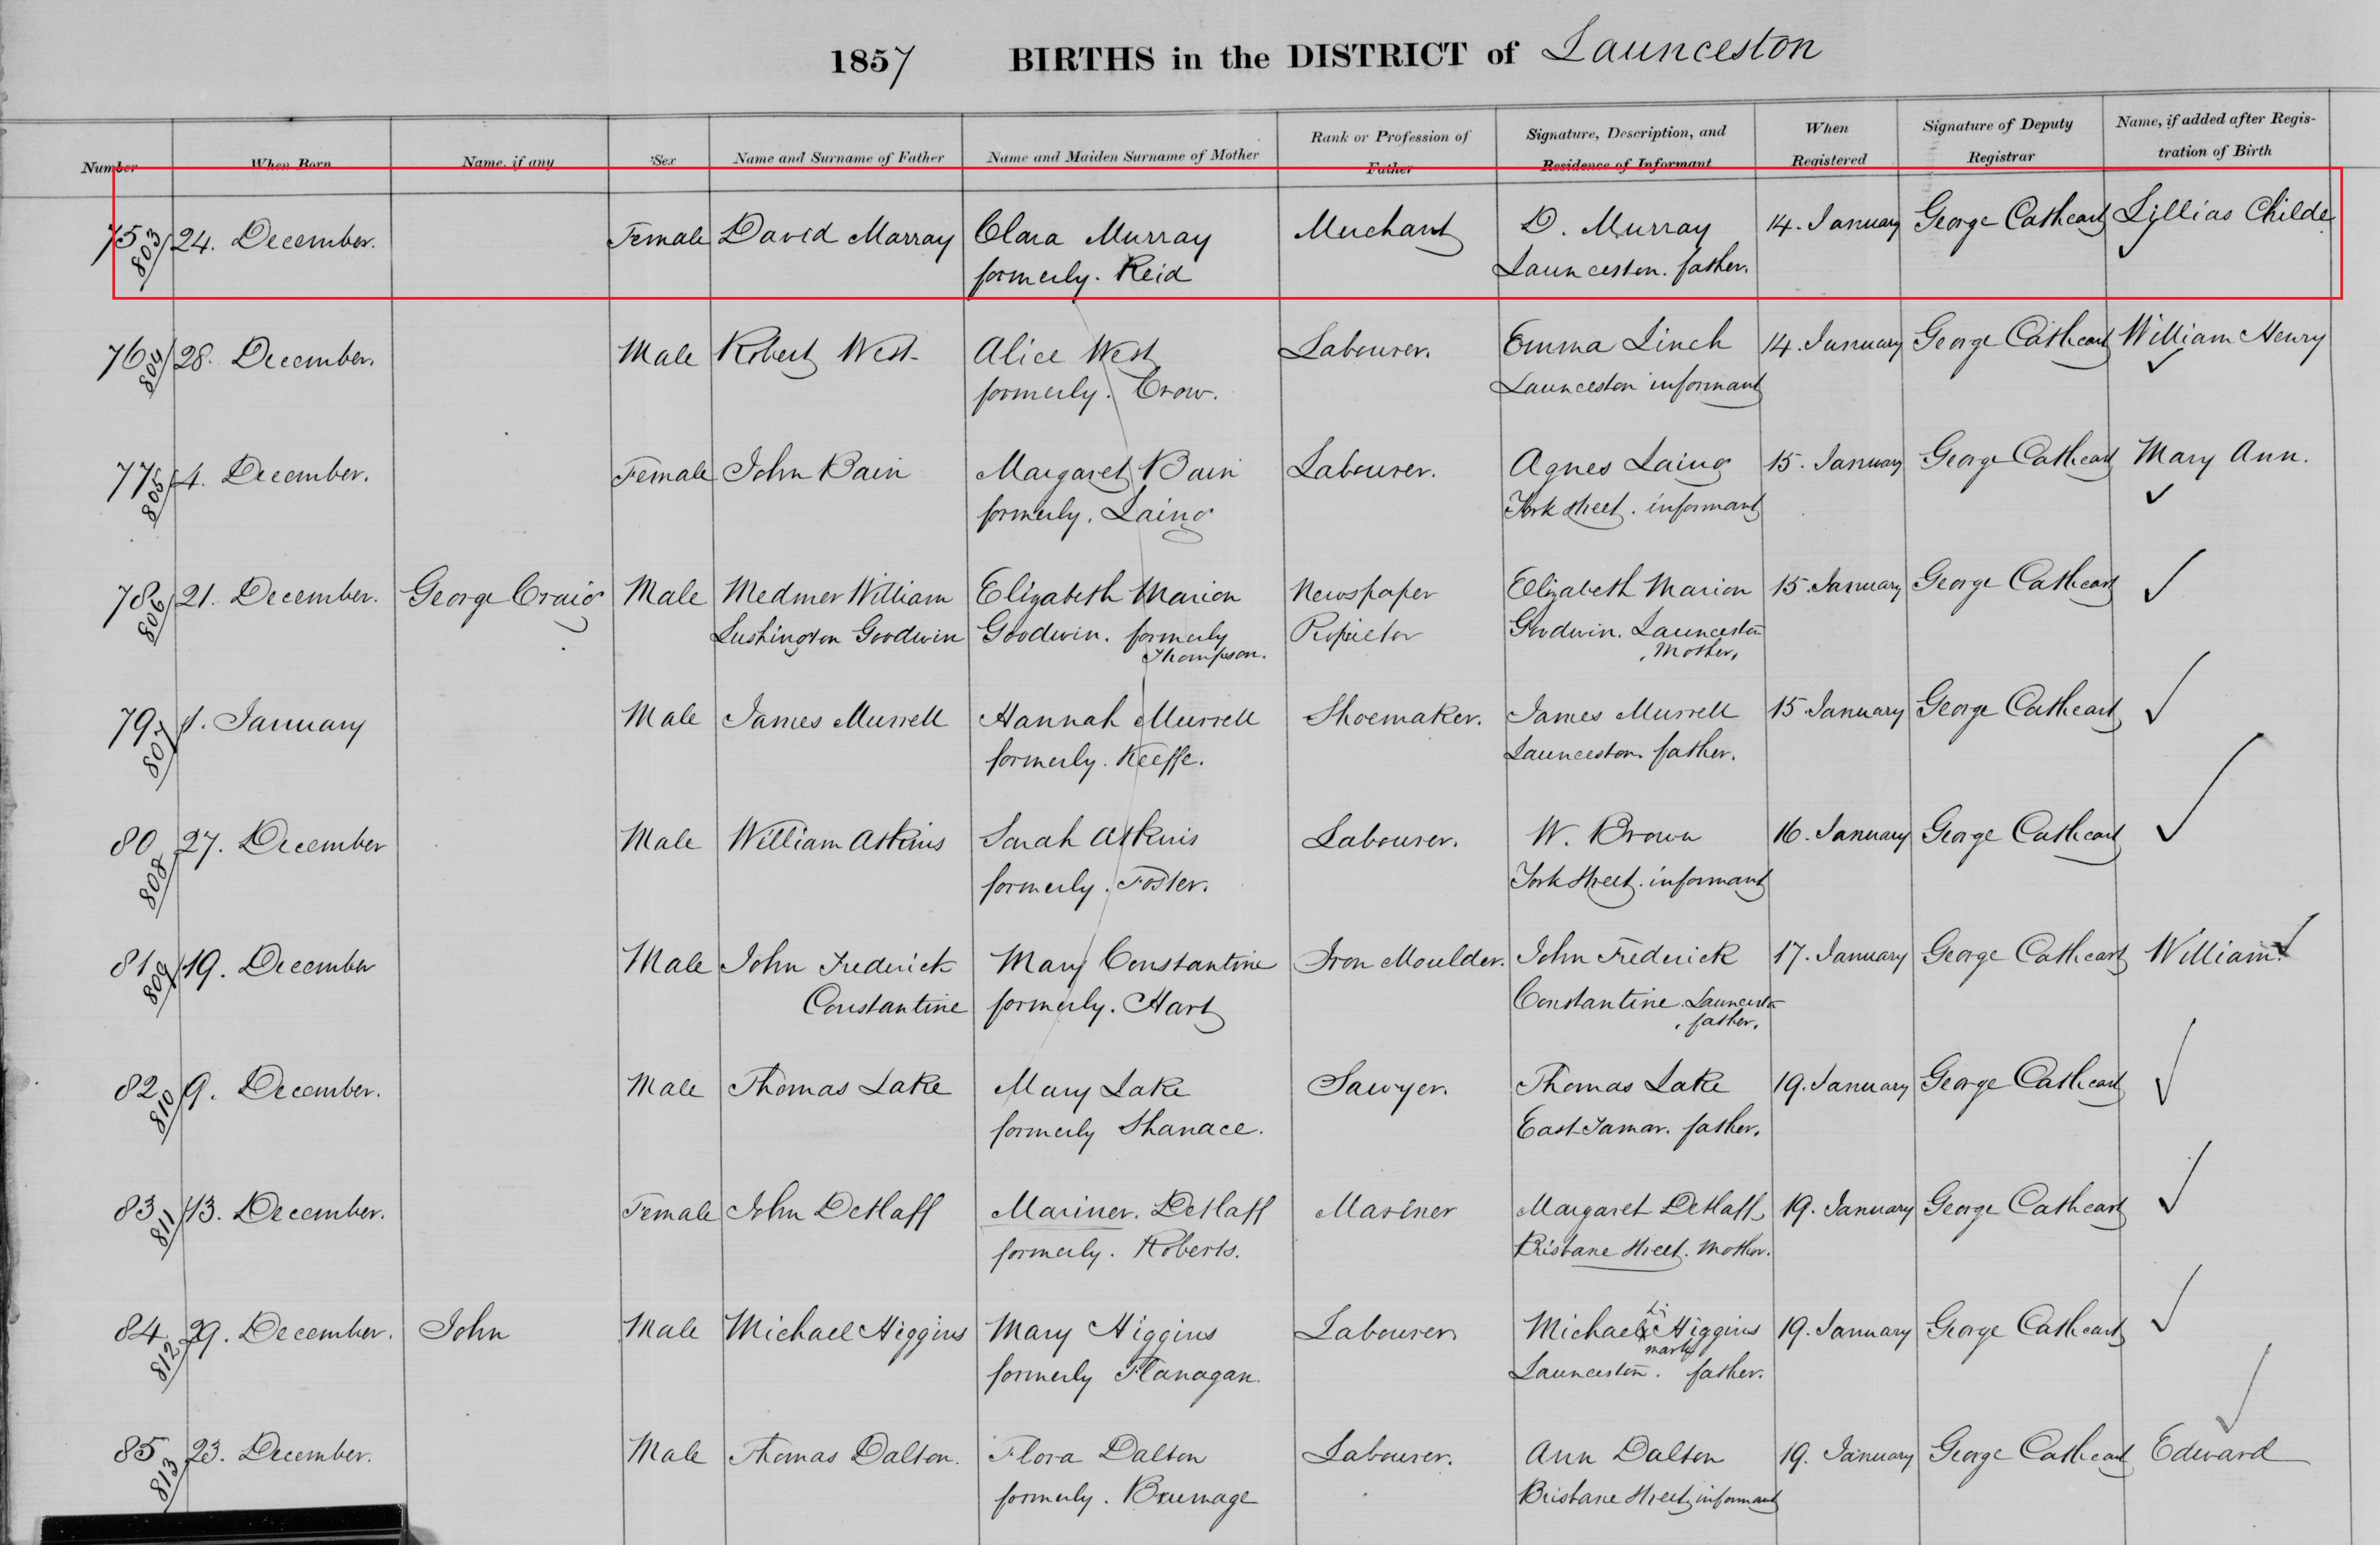 1857 BIRTHS in the DISTRICT of Launceston
Number When Born Name, if any Sex Name and Surname of Father Name and Maiden Surname of Mother Rank or Profession of Father Signature, Description, and Residence of Informant When Registered Signature of Deputy Registrar Name, if added after Registration of Birth
75 24. December. Female David Marray Clara Murray Merchant D. Murray 14. January George Cathcart Lyllias Childe
803 formerly. Reid Launceston. father.
76 28. December. Male Robert West Alice West Labourer. Emma Linch 14. January George Cathcart William Henry
804 formerly. Crow. Launceston informant
77 4. December. Female John Bain Margaret Bain Labourer. Agnes Laing 15. January George Cathcart Mary Ann.
805 formerly. Laing York Street. informant
78 21. December. George Craig Male Medmer William Elizabeth Marion Newspaper Elizabeth Marion 15. January George Cathcart
806 Lushington Goodwin Goodwin. formerly Propietor Goodwin. Launceston
Thompson. Mother.
79 1. January Male James Murrell Hannah Murrell Shoemaker. James Murrell 15 January George Cathcart
807 formerly. Keeffe. Launceston. father.
80 27. December Male William Atkins Sarah Atkins Labourer. W. Brown 16. January George Cathcart
808 formerly. Foster. York Street. informant
81 19. December Male John Frederick Mary Constantine Iron Moulder. John Frederick 17. January George Cathcart William.
809 Constantine formerly. Hart Constantine. Launceston
father.
82 9. December. Male Thomas Lake Mary Lake Sawyer. Thomas Lake 19. January George Cathcart
810 formerly Shanace. East Tamar. father.
83 13. December. Female John Detlaff Mariner. Detlaff Mariner Margaret Detlaff 19. January George Cathcart
811 formerly. Roberts. Brisbane Street. Mother.
84 29. December. John Male Michael Higgins Mary Higgins Labourer Michael X Higgins 19. January George Cathcart
mark
812 formerly Flanagan. Launceston. father.
85 23. December. Male Thomas Dalton. Flora Dalton Labourer. Ann Dalton 19. January George Cathcart Edward
813 formerly. Brumage Brisbane Street, informant